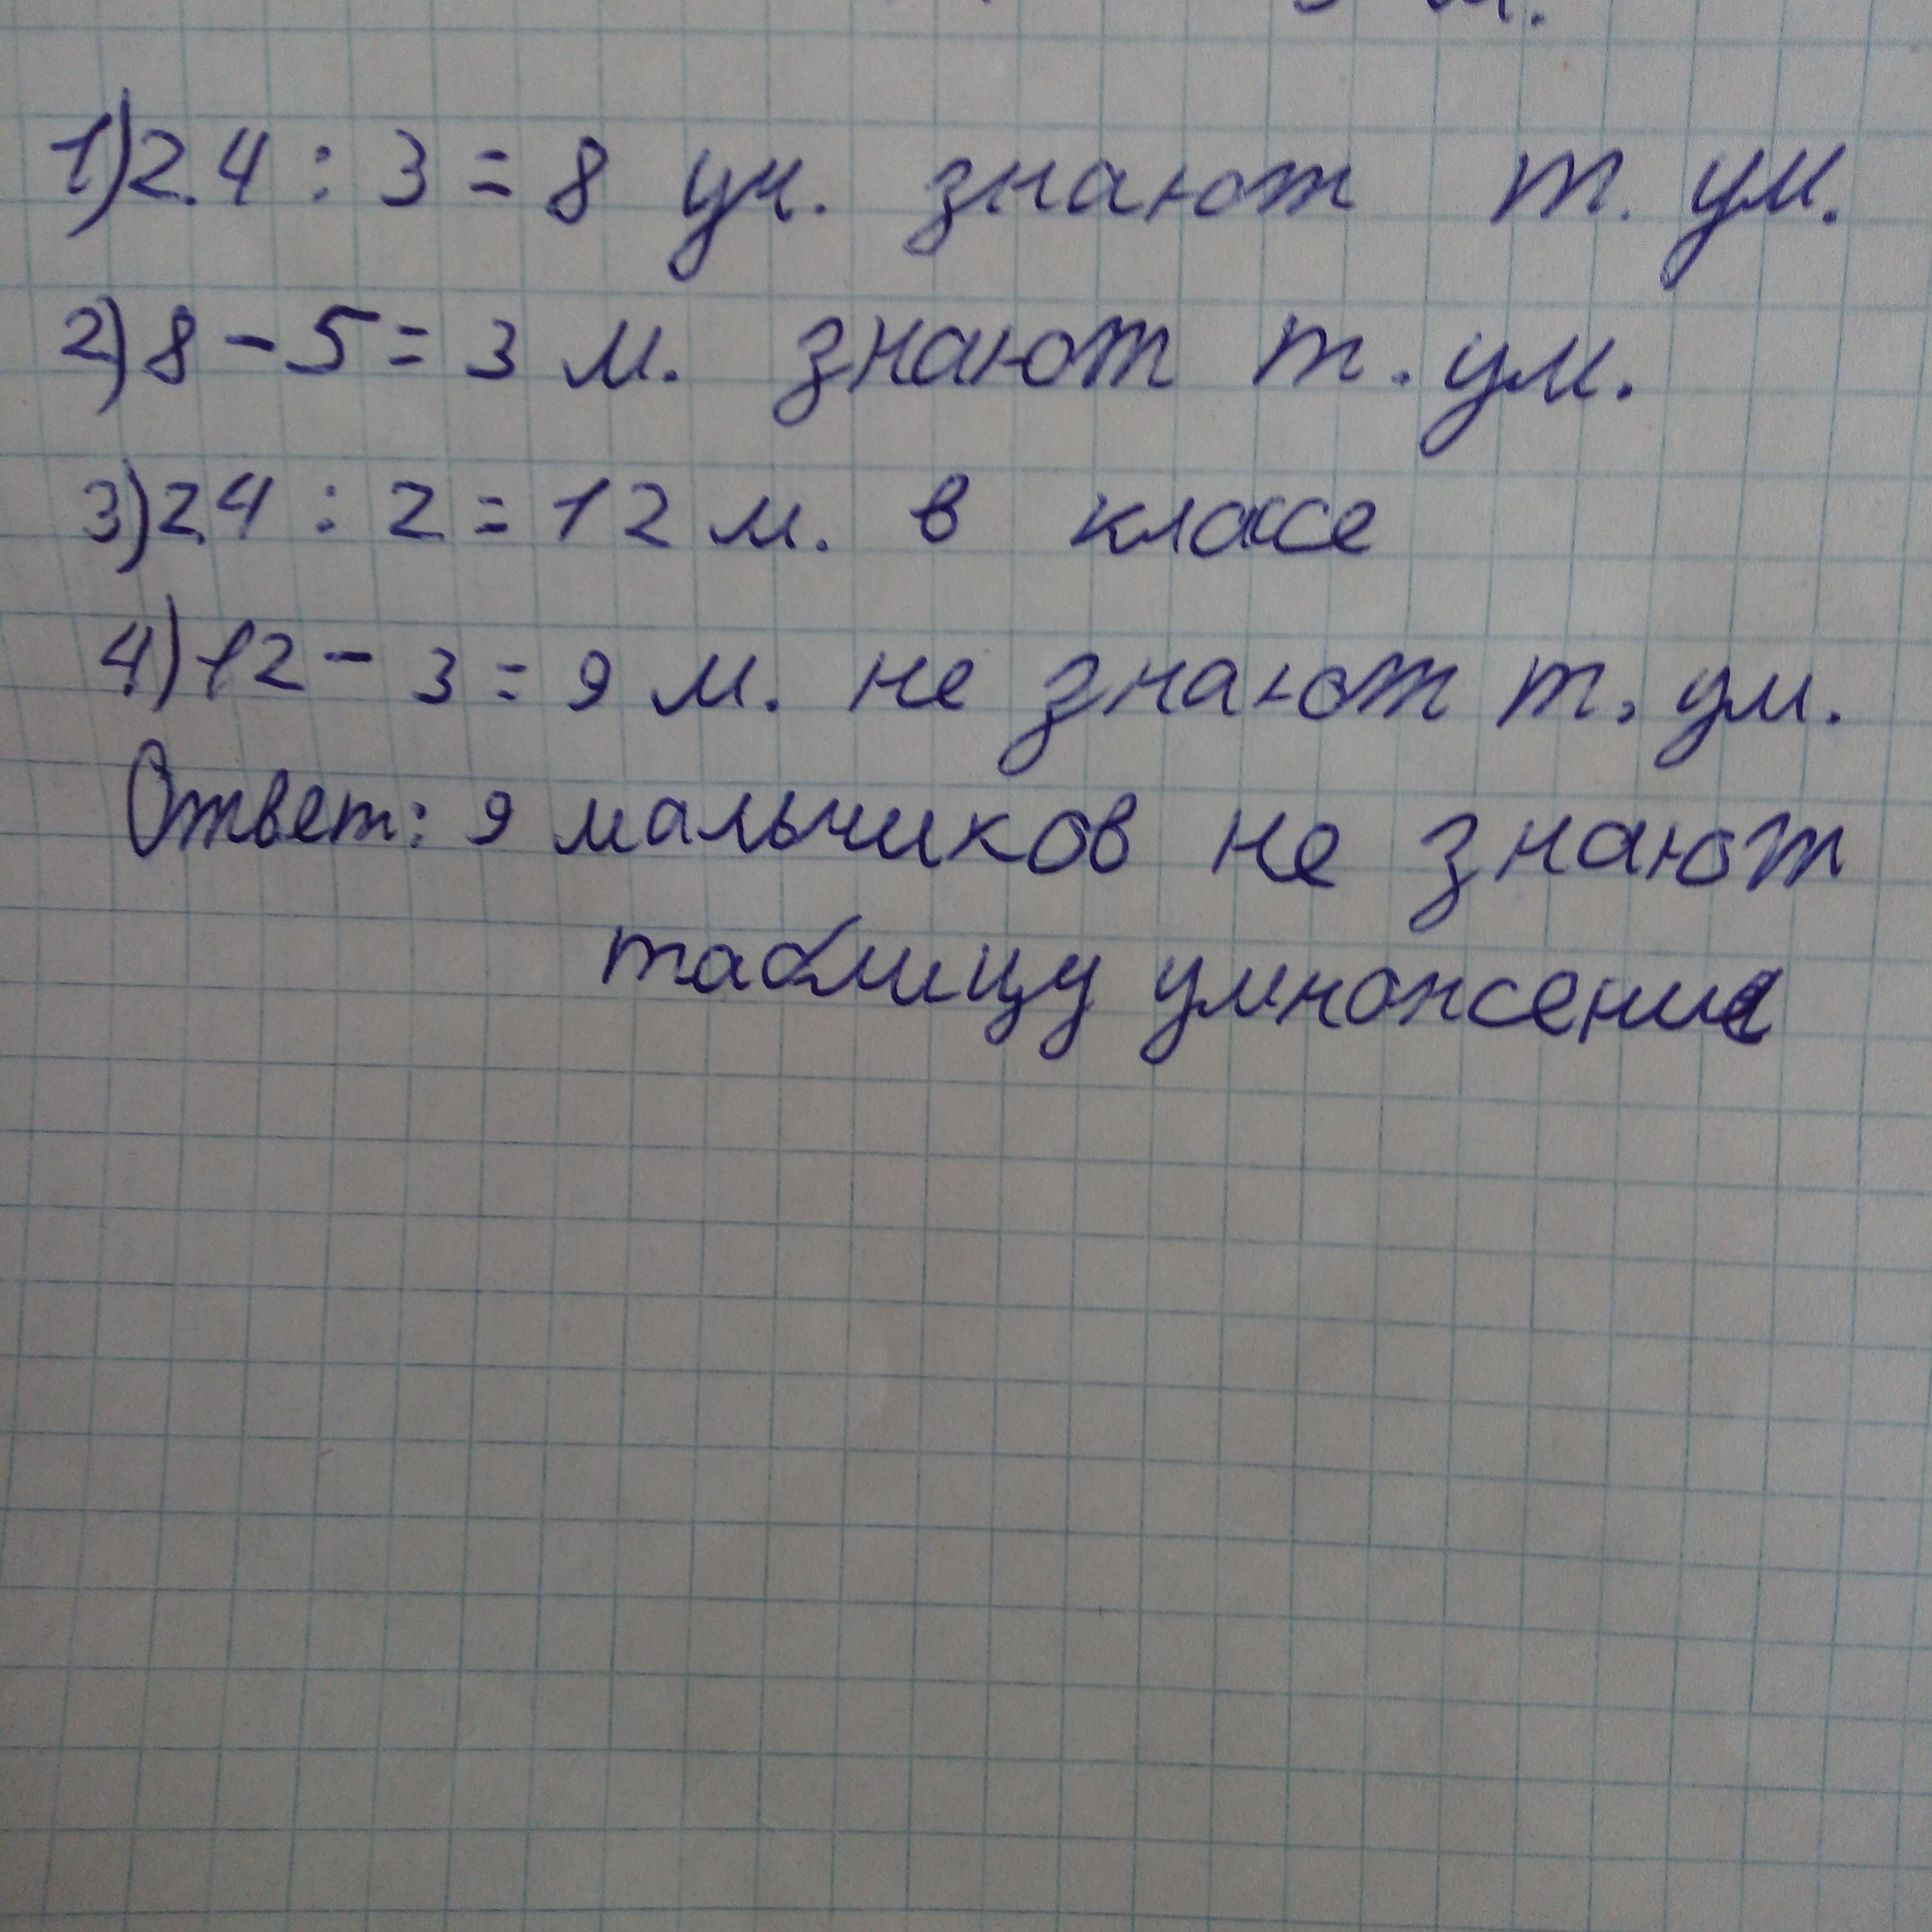 1) 24 : 3 = 8 уч. знают т. ум.
2) 8 - 5 = 3 м. знают т. ум.
3) 24 : 2 = 12 м. в классе
4) 12 - 3 = 9 м. не знают т. ум.
Ответ: 9 мальчиков не знают
таблицу умножение